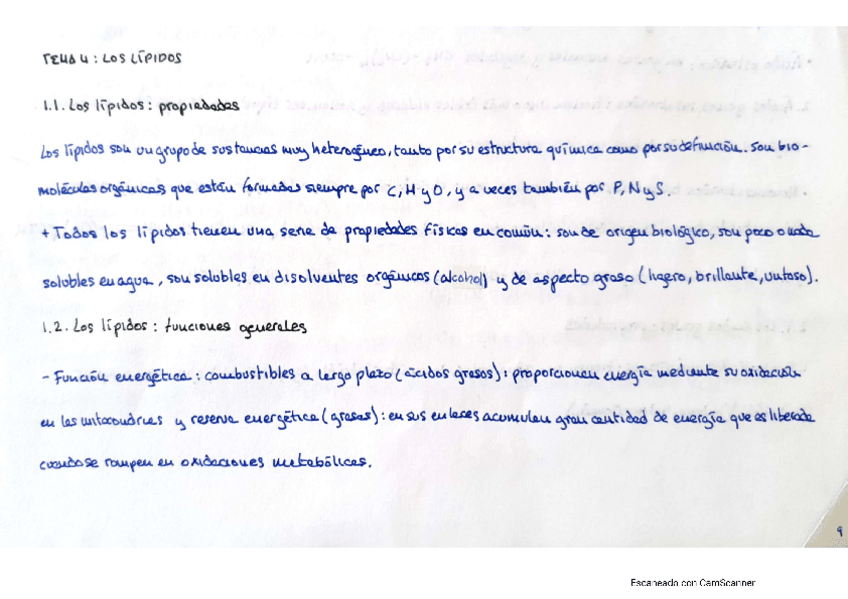 TEMA 4: LOS LÍPIDOS
1.1. Los lípidos: propiedades
Los lípidos son un grupo de sustancias muy heterogéneo, tanto por su estructura química como por su definición. Son bio-
moléculas orgánicas que están formadas siempre por C, H y O, y a veces también por P, N y S.
+ Todos los lípidos tienen una serie de propiedades físicas en común: son de origen biológico, son poco o nada
solubles en agua, son solubles en disolventes orgánicos (alcohol) y de aspecto graso (ligero, brillante, untoso).
1.2. Los lípidos: funciones generales
- Función energética: combustibles a largo plazo (ácidos grasos): proporcionan energía mediante su oxidación
en las mitocondrias y reserva energética (grasas): en sus enlaces acumulan gran cantidad de energía que es liberada
cuando se rompen en oxidaciones metabólicas.
9
Escaneado con CamScanner